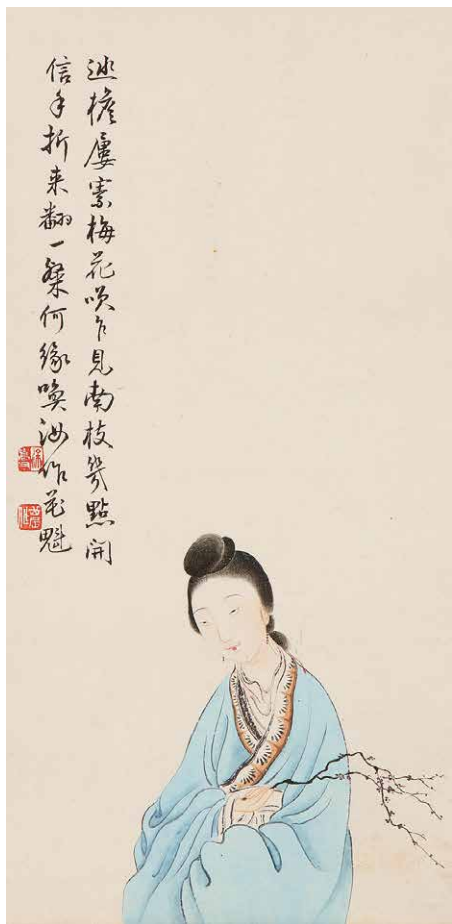 巡檐屢索梅花咲乍見南枝幾點開
信手折来翻一粲何緣喚汝作花魁